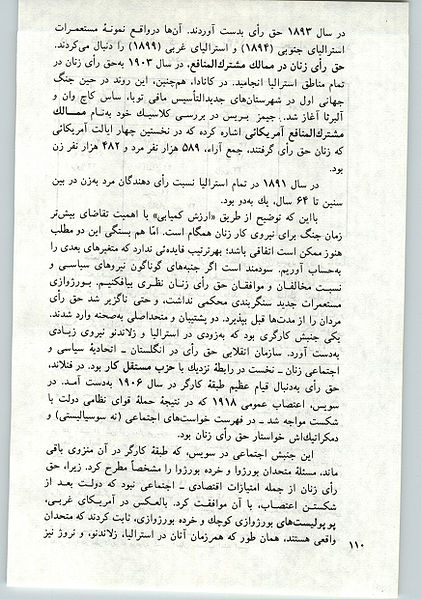 در سال ۱۸۹۳ حق رأی بدست آوردند. آن‌ها درواقع نمونهٔ مستعمرات
استرالیای جنوبی (۱۸۹۴) و استرالیای غربی (۱۸۹۹) را دنبال می‌کردند.
حق رأی زنان در ممالك مشترك‌المنافع، در سال ۱۹۰۳ به‌حق رأی زنان در
تمام مناطق استرالیا انجامید. در کانادا، هم‌چنین، این روند در حین جنگ
جهانی اول در شهرستان‌های جدیدالتأسیس مافی توبا، ساس کاچ وان و
آلبرتا آغاز شد. جیمز بریس در بررسی کلاسیك خود به‌نام ممالك
مشترك‌المنافع آمریکائی اشاره کرده که در نخستین چهار ایالت آمریکائی
که زنان حق رأی گرفتند، جمع آراء، ۵۸۹ هزار نفر مرد و ۴۸۲ هزار نفر زن
بود.
در سال ۱۸۹۱ در تمام استرالیا نسبت رأی دهندگان مرد به‌زن در بین
سنین تا ۶۴ سال، یك به‌دو بود.
بااین که توضیح از طریق «ارزش کمیابی» با اهمیت تقاضای بیش‌تر
زمان جنگ برای نیروی کار زنان همگام است. امّا هم بستگی این دو مطلب
هنوز ممکن است اتفاقی باشد؛ بهرترتیب فایده‌ئی ندارد که متغیرهای بعدی را
به‌حساب آوریم. سودمند است اگر جنبه‌های گوناگون نیروهای سیاسی و
نسبت مخالفان و موافقان حق رأی زنان نظری بیافکنیم. بورژوازی
مستعمرات جدید سنگربندی محکمی نداشت، و حتی ناگزیر شد حق رأی
مردان را از مدت‌ها قبل بپذیرد. دو پشتیبان و متحداصلی به‌صحنه وارد شدند.
یکی جنبش کارگری بود که به‌زودی در استرالیا و زلاندنو نیروی زیادی
به‌دست آورد. سازمان انقلابی حق رأی در انگلستان ـ اتحادیهٔ سیاسی و
اجتماعی زنان ـ نخست در رابطهٔ نزدیك با حزب مستقل کار بود. در فنلاند،
حق رأی به‌دنبال قیام عظیم طبقهٔ کارگر در سال ۱۹۰۶ به‌دست آمد. در
سویس، اعتصاب عمومی ۱۹۱۸ که در نتیجهٔ حملهٔ قوای نظامی دولت با
شکست مواجه شد ـ در فهرست خواست‌های اجتماعی (نه سوسیالیستی) و
دمکراتیك‌اش خواستار حق رأی زنان بود.
این جنبش اجتماعی در سویس، که طبقهٔ کارگر در آن منزوی باقی
ماند، مسئلهٔ متحدان بورژوا و خرده بورژوا را مشخصاً مطرح کرد. زیرا، حق
رأی زنان از جمله امتیازات اقتصادی ـ اجتماعی نبود که دولت بعد از
شکستن اعتصاب، با آن موافقت کرد. بالعکس در آمریکای غربی،
پوپولیست‌های بورژوازی کوچك و خرده بورژوازی، ثابت کردند که متحدان
واقعی هستند، همان طور که همرزمان آنان در استرالیا، زلاندنو، و نروژ نیز
۱۱۰